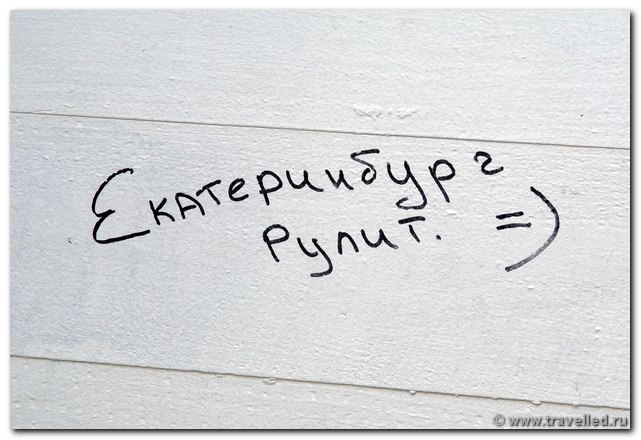 Екатеринбург
рулит. =)
© www.travelled.ru